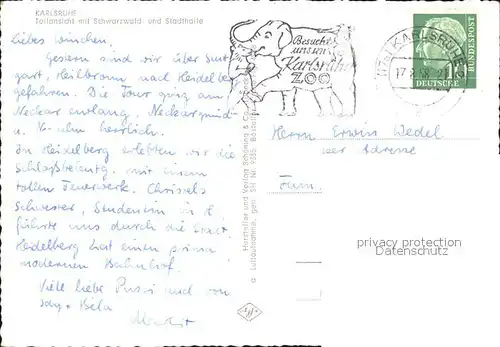 KARLSRUHE
Teilansicht mit Schwarzwald- und Stadthalle
liebes
Gestern sind wir über Stutt
gart, Heilbronn nach Heidel
gefahren. Die Tour ging am
Neckar entlang, Neckargmünd
u. herrlich.
In Heidelberg erlebten wir die
Schloßbeleuchtg. mit einem
tollen Feuerwerk. Christels
Schwester, Studentin in H.
führte uns durch die Stadt.
Heidelberg hat einen prima
modernen Bahnhof.
Viele liebe Pussi und von
Béla
Hersteller und Verlag Schöning & Co.
Luftaufnahme, gen.
Besucht
unseren
Karlsruher
ZOO
KARLSRUHE
17.8.58
DEUTSCHE
BUNDESPOST
10
Herrn Erwin Wedel
Adresse
privacy protection
Datenschutz